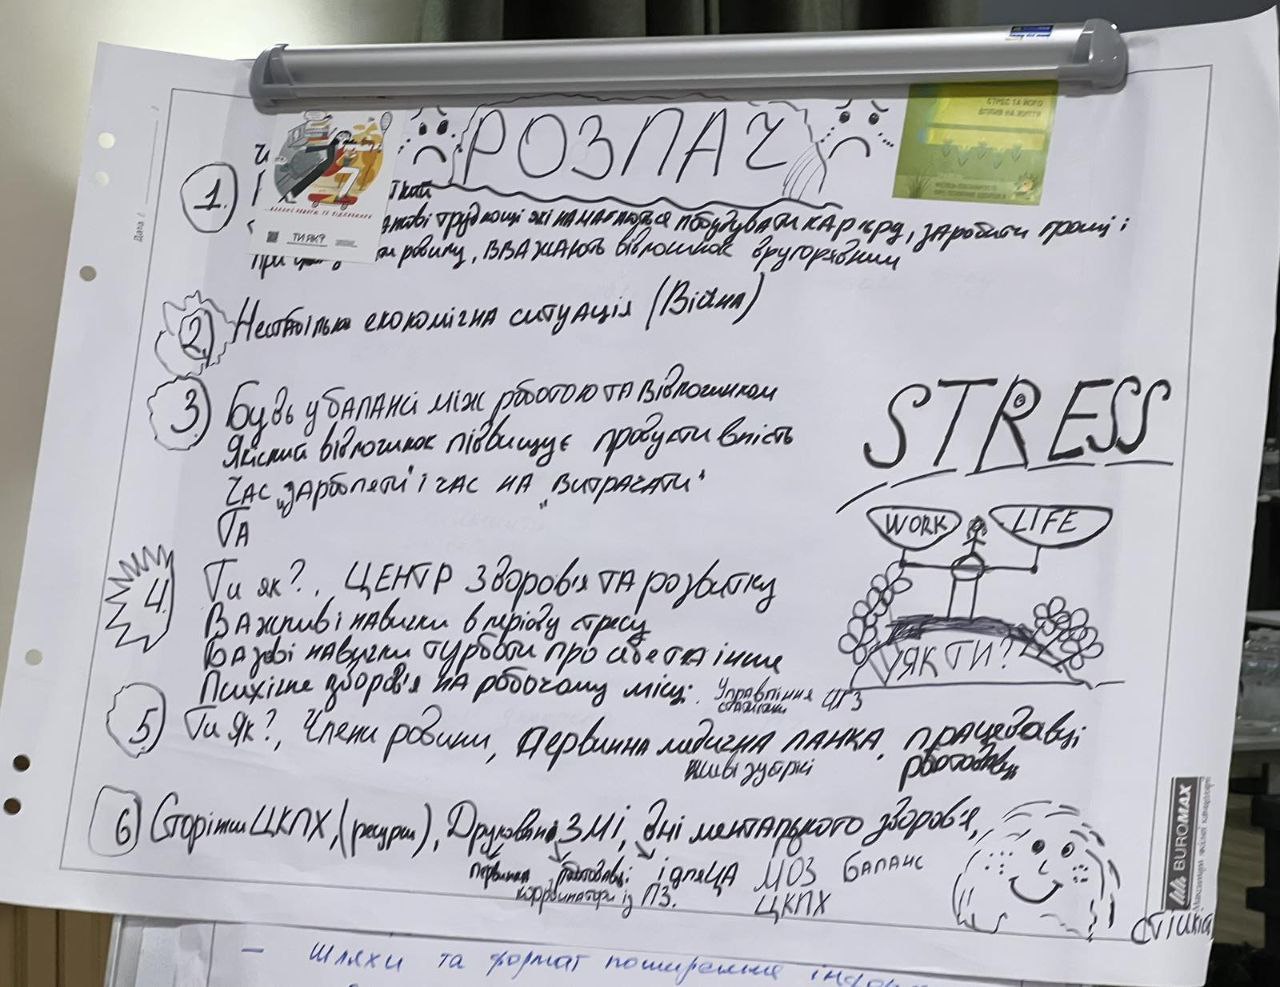 РОЗПАЧ
СТРЕС ТА ЙОГО
ВПЛИВ НА ЖИТТЯ
1.
ТИ ЯК?
трудноці які намагаються побудувати карєру, заробити гроші і
родину, ВВАЖАЮТЬ відпочинок другорядним
2. Нестабільна економічна ситуація (Війна)
3 Будь у балансі між роботою та відпочинком
Якісний відпочинок підвищує продуктивність
Час „заробляти" і час на „витрачати"
Та
STRESS
WORK LIFE
ЯК ТИ?
4. Ти як?, ЦЕНТР здоров'я та розвитку
Важливі навички в періоду стресу
Базові навички турботи про себе та інше
Психічне здоров'я на робочому місці. Управління
ЦГЗ
5 Ти Як?, Члени родини, первинна медична ланка, працедавці
роботодавці
6 Сторінки ЦКПХ, (ресурси), Друковані ЗМІ, дні ментарького здоров'я,
первинка роботодавці і для ЦА МОЗ баланс
координатори із ПЗ. ЦКПХ
Стійкій
BUROMAX
Дата /
– шляхи та формат поширення